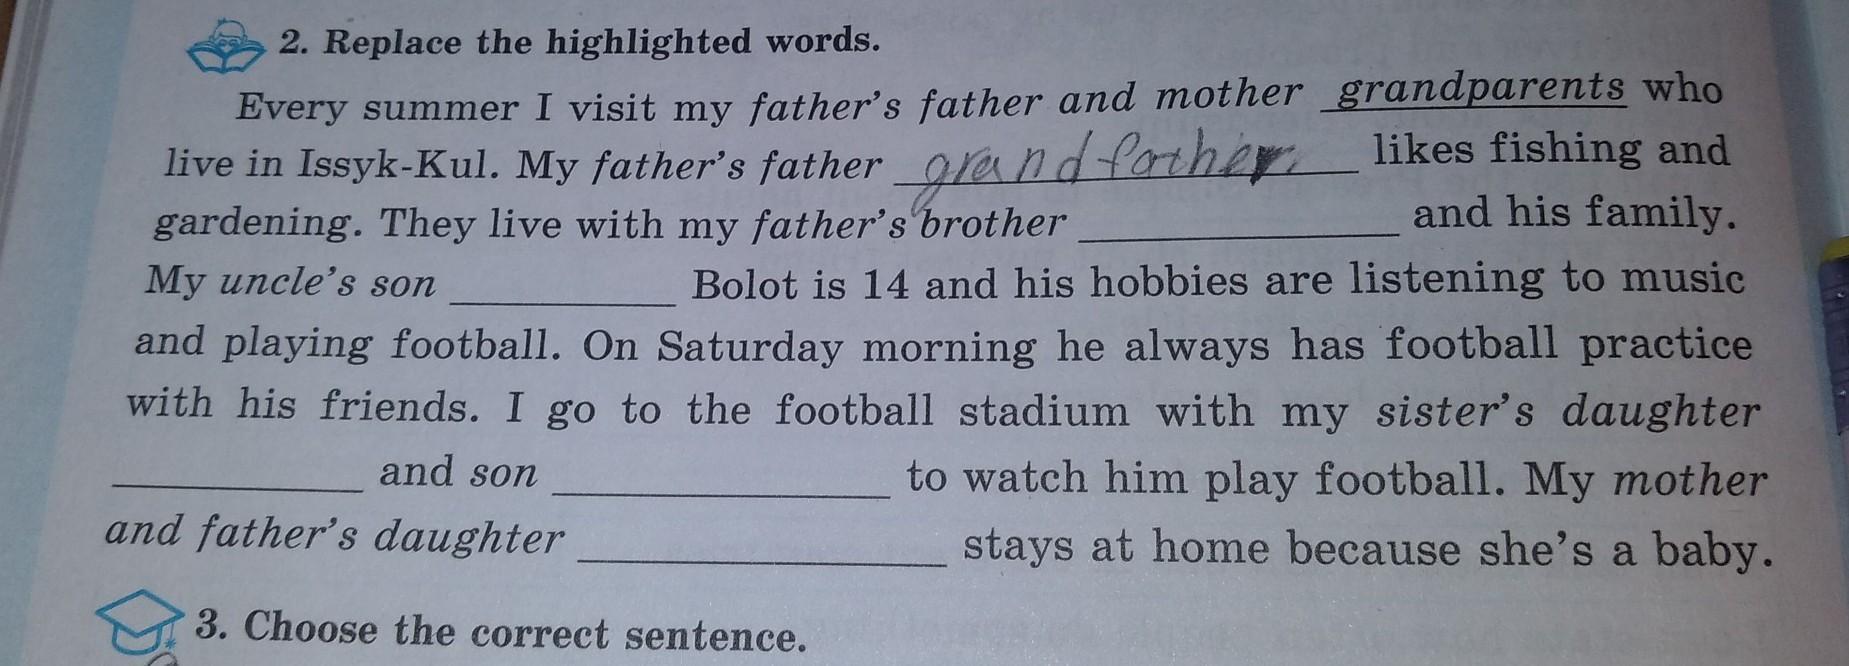 2. Replace the highlighted words.
Every summer I visit my father's father and mother grandparents who
live in Issyk-Kul. My father's father grandfather likes fishing and
gardening. They live with my father's brother ____________ and his family.
My uncle's son ____________ Bolot is 14 and his hobbies are listening to music
and playing football. On Saturday morning he always has football practice
with his friends. I go to the football stadium with my sister's daughter
____________ and son ____________ to watch him play football. My mother
and father's daughter ____________ stays at home because she's a baby.
3. Choose the correct sentence.